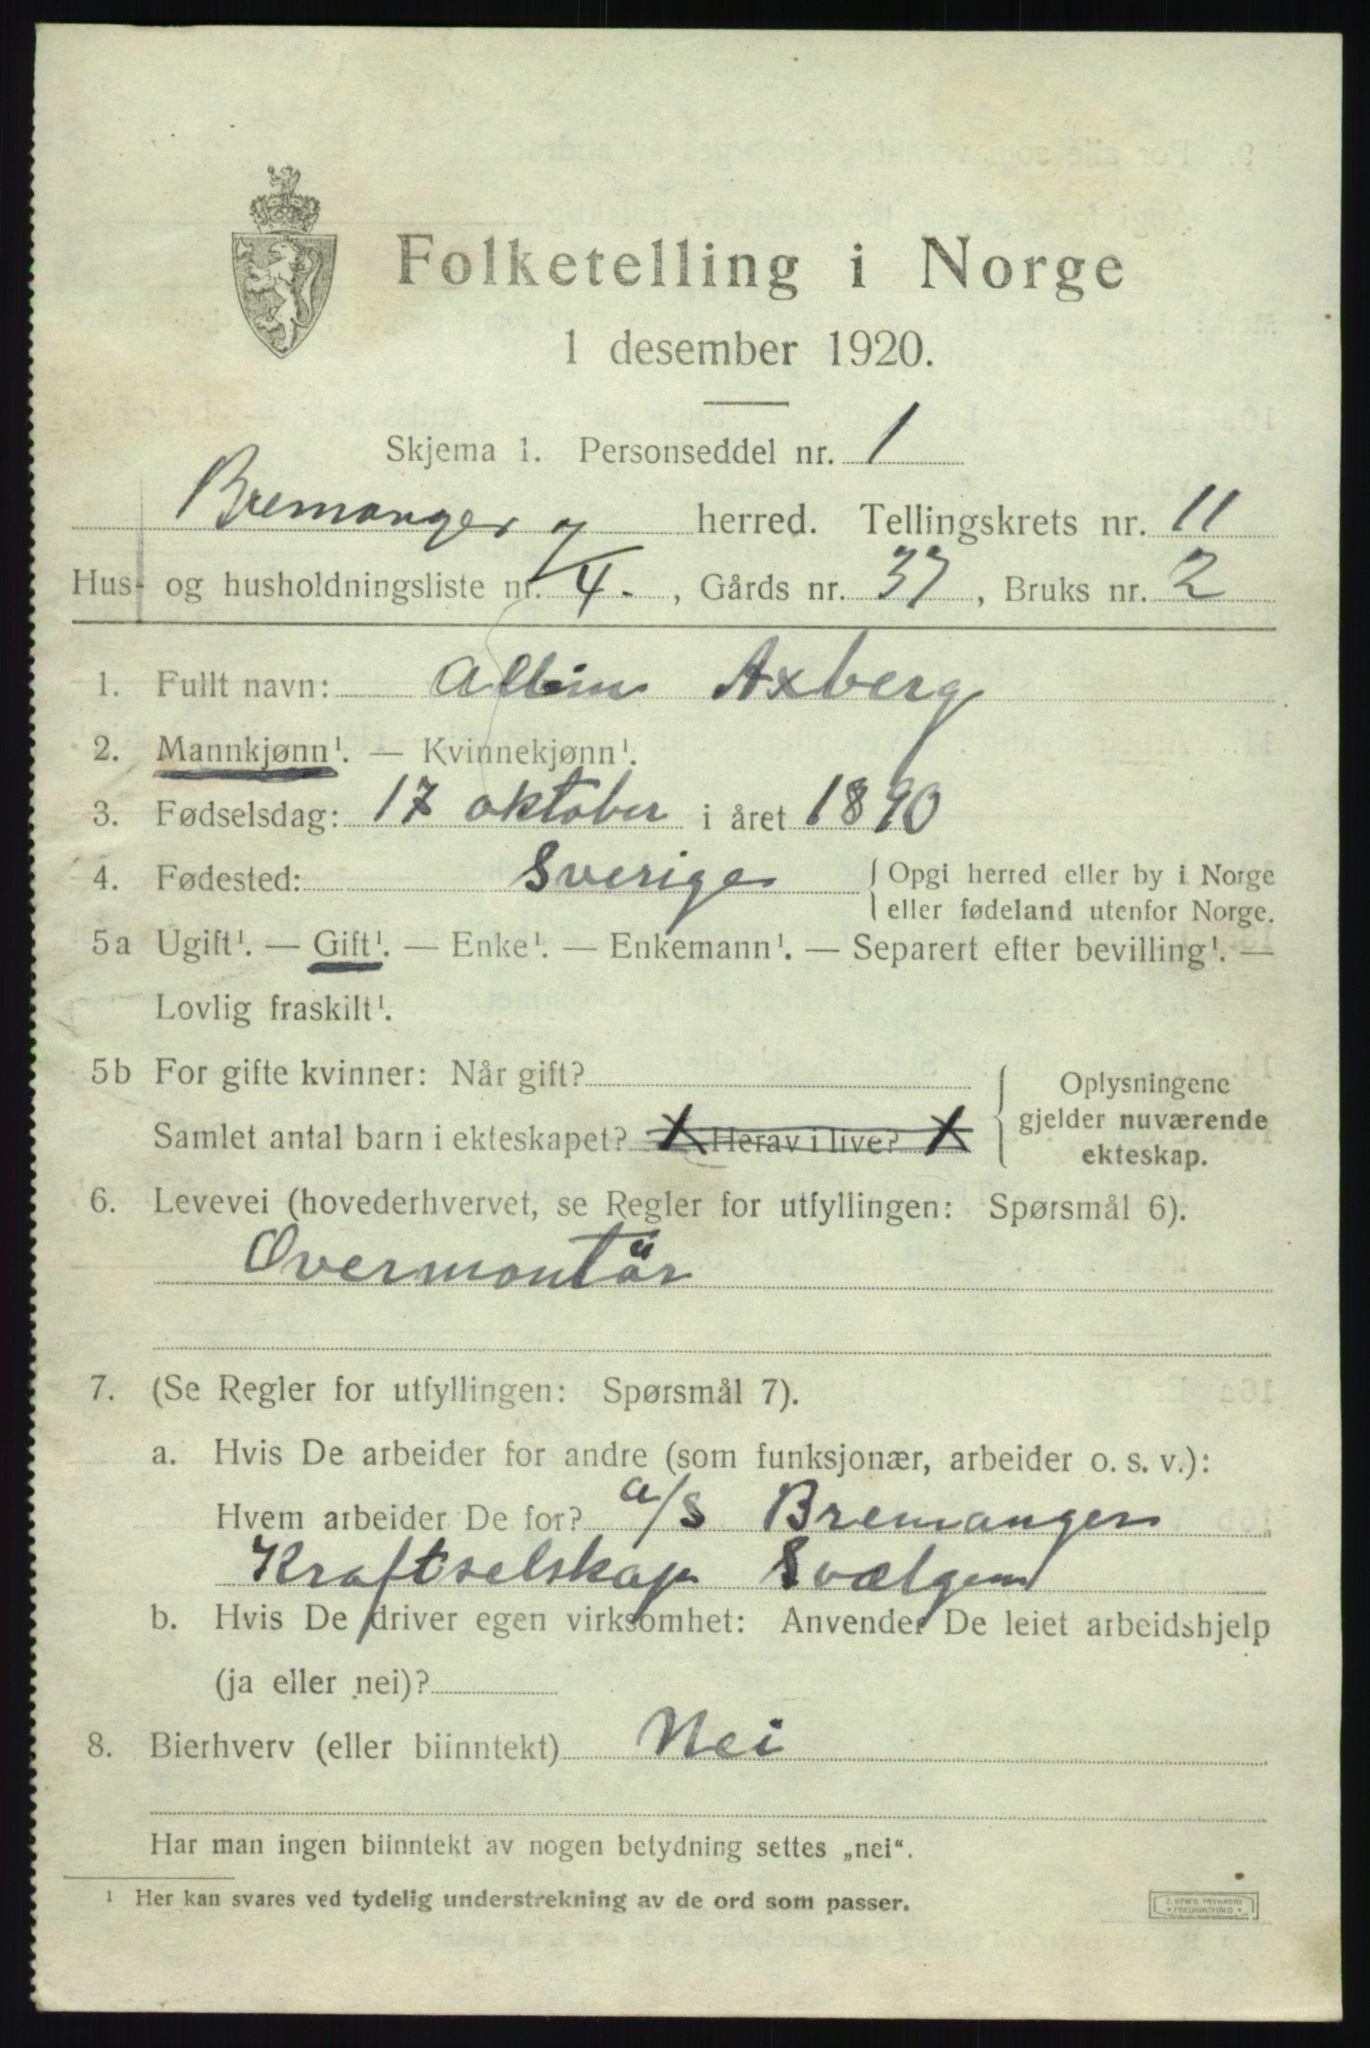 Folketelling i Norge
1 desember 1920.
Skjema 1. Personseddel nr. 1
Bremanger herred. Tellingskrets nr. 11
Hus- og husholdningsliste nr. 4. , Gårds nr. 37 , Bruks nr. 2
1. Fullt navn: Albin Axberg
2. Mannkjønn¹. — Kvinnekjønn¹.
3. Fødselsdag: 17 oktober i året 1890
4. Fødested: Sverige { Opgi herred eller by i Norge
eller fødeland utenfor Norge.
5a Ugift¹. — Gift¹. — Enke¹. — Enkemann¹. — Separert efter bevilling¹. —
Lovlig fraskilt¹.
5b For gifte kvinner: Når gift?
Samlet antal barn i ekteskapet? X Herav i live? X
{ Oplysningene
gjelder nuværende
ekteskap.
6. Levevei (hovederhvervet, se Regler for utfyllingen: Spørsmål 6).
Overmontör
7. (Se Regler for utfyllingen: Spørsmål 7).
a. Hvis De arbeider for andre (som funksjonær, arbeider o. s. v.):
Hvem arbeider De for? a/s Bremanger
Kraftselskap Svælgen
b. Hvis De driver egen virksomhet: Anvender De leiet arbeidshjelp
(ja eller nei)?
8. Bierhverv (eller biinntekt) Nei
Har man ingen biinntekt av nogen betydning settes „nei“.
¹ Her kan svares ved tydelig understrekning av de ord som passer.